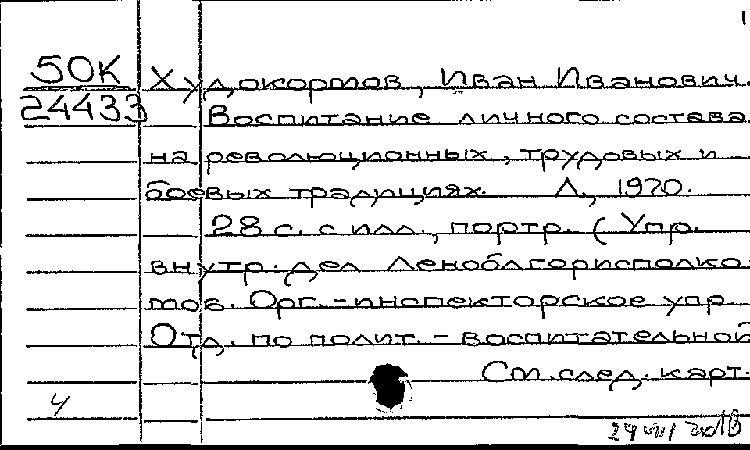 50К
24433
Худокормов, Иван Иванович.
Воспитание личного состава
на революционных, трудовых и
боевых традициях. Л., 1970.
28 с. с илл., портр. (Упр.
внутр. дел Леноблгорисполко-
мов. Орг.-инспекторское упр
Отд. по полит.-воспитательной
См. след. карт.
4